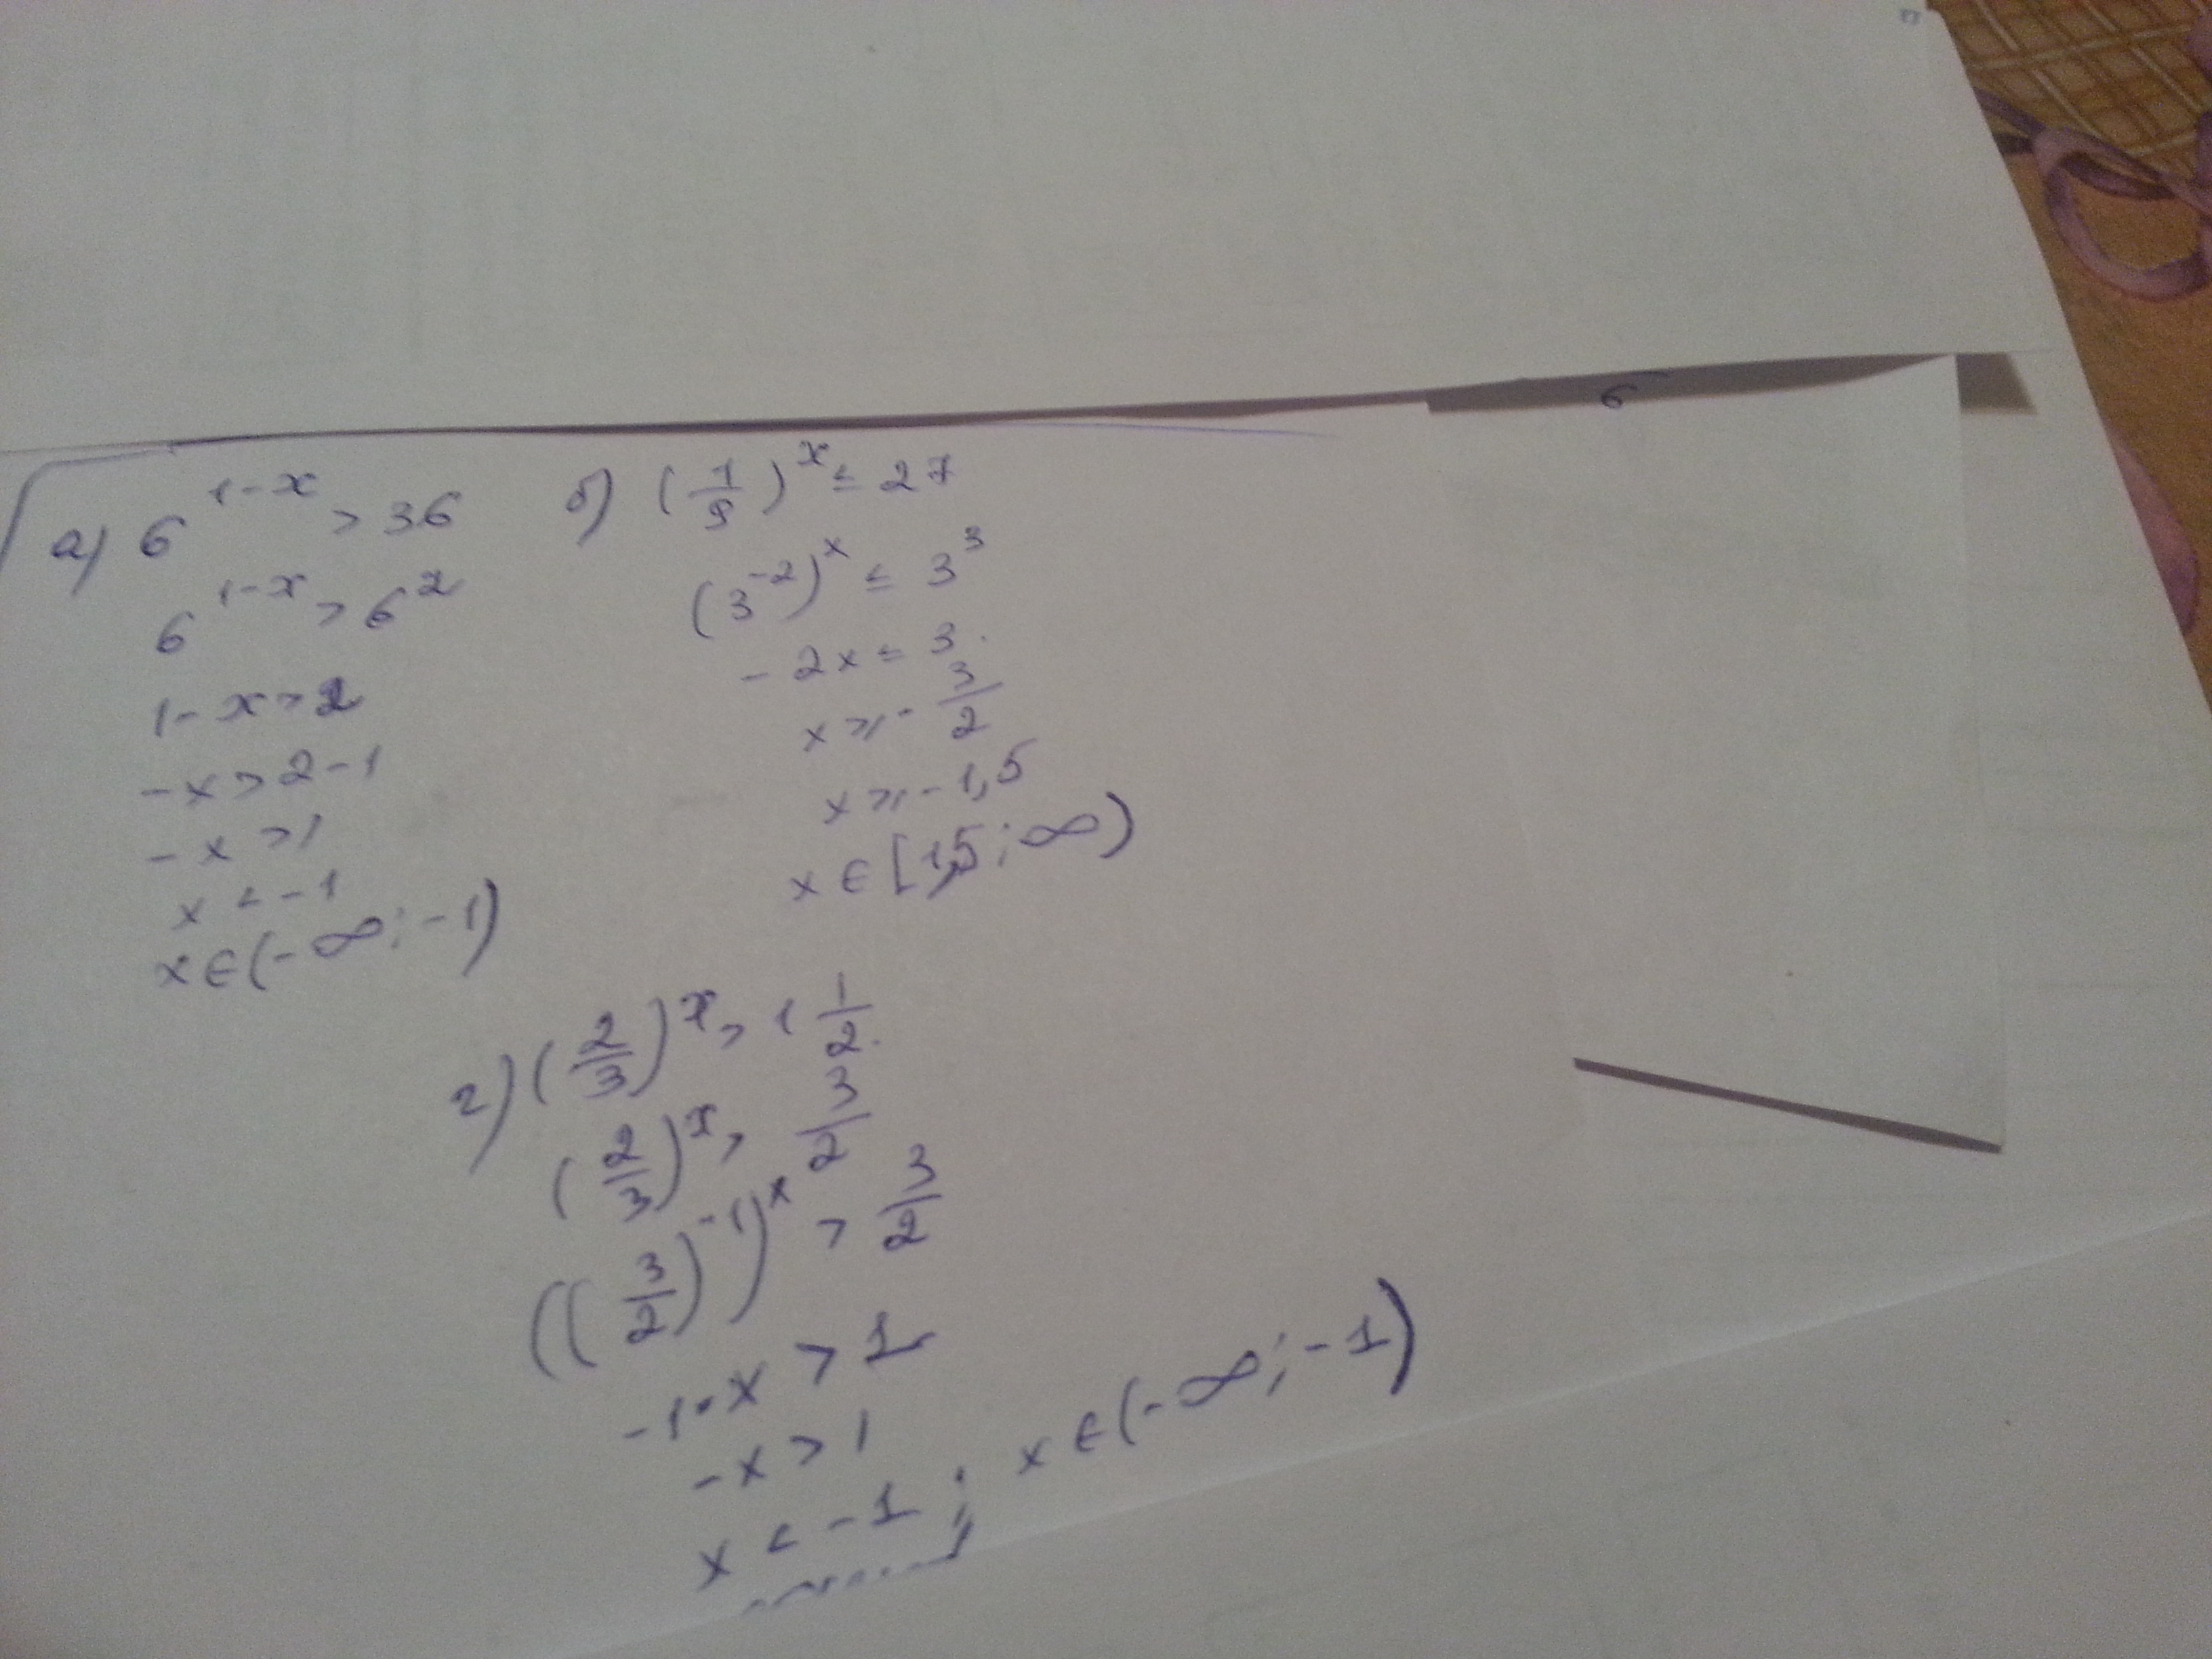 а) 6^(1-x) > 36
6^(1-x) > 6^2
1-x > 2
-x > 2-1
-x > 1
x < -1
x ∈ (-∞; -1)
б) (1/9)^x ≤ 27
(3^-2)^x ≤ 3^3
-2x ≤ 3
x ≥ -3/2
x ≥ -1,5
x ∈ [1,5; ∞)
г) (2/3)^x > 1 1/2
(2/3)^x > 3/2
((3/2)^-1)^x > 3/2
-1·x > 1
-x > 1
x < -1; x ∈ (-∞; -1)
6